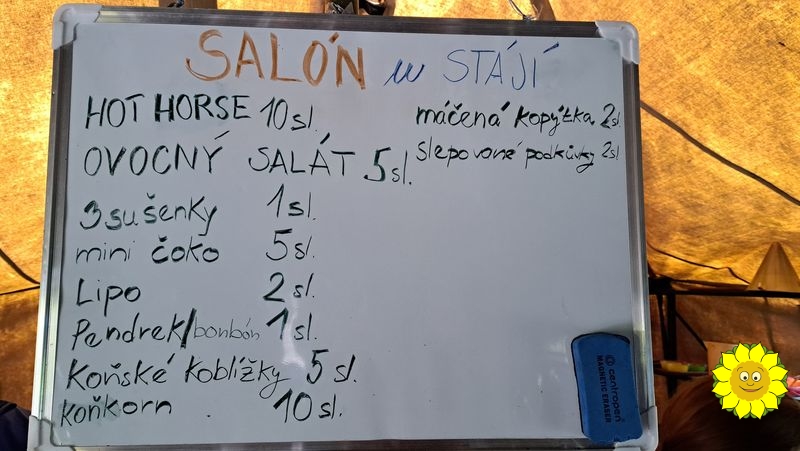 SALÓN u STÁJÍ
HOT HORSE 10 sl.
OVOCNÝ SALÁT 5 sl.
3 sušenky 1 sl.
mini čoko 5 sl.
Lipo 2 sl.
Pendrek/bonbón 1 sl.
Koňské koblížky 5 sl.
koňkorn 10 sl.
máčená kopýtka 2 sl.
slepované podkůvky 2 sl
centropen
MAGNETIC ERASER